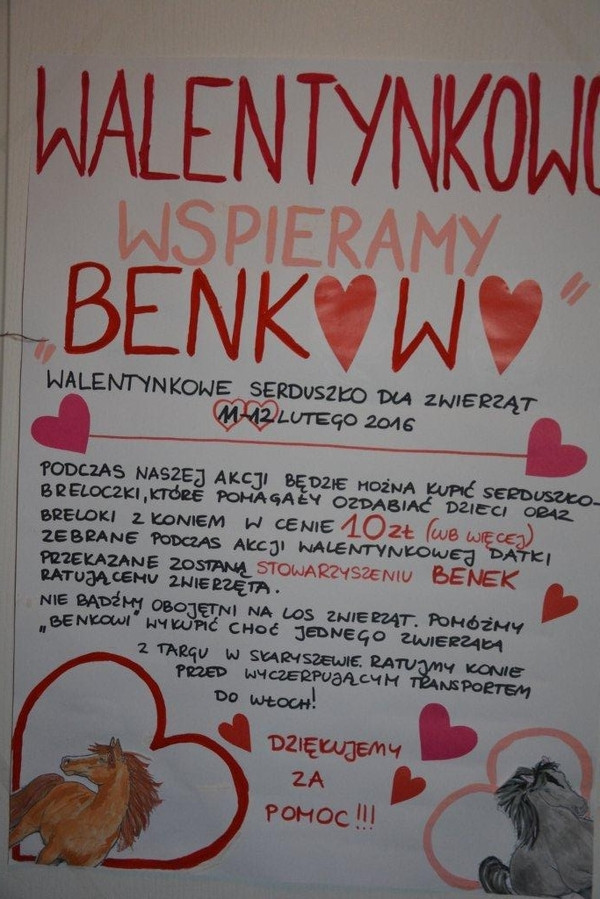 WALENTYNKOWO
WSPIERAMY
„BENK♥W♥"
WALENTYNKOWE SERDUSZKO DLA ZWIERZĄT
11-12 LUTEGO 2016
PODCZAS NASZEJ AKCJI BĘDZIE MOŻNA KUPIĆ SERDUSZKO-
BRELOCZKI, KTÓRE POMAGAŁY OZDABIAĆ DZIECI ORAZ
BRELOKI Z KONIEM W CENIE 10 ZŁ (LUB WIĘCEJ)
ZEBRANE PODCZAS AKCJI WALENTYNKOWEJ DATKI
PRZEKAZANE ZOSTANĄ STOWARZYSZENIU BENEK
RATUJĄCEMU ZWIERZĘTA.
NIE BĄDŹMY OBOJĘTNI NA LOS ZWIERZĄT. POMÓŻMY
„BENKOWI" WYKUPIĆ CHOĆ JEDNEGO ZWIERZAKA
Z TARGU W SKARYSZEWIE. RATUJMY KONIE
PRZED WYCZERPUJĄCYM TRANSPORTEM
DO WŁOCH!
DZIĘKUJEMY
ZA
POMOC!!!